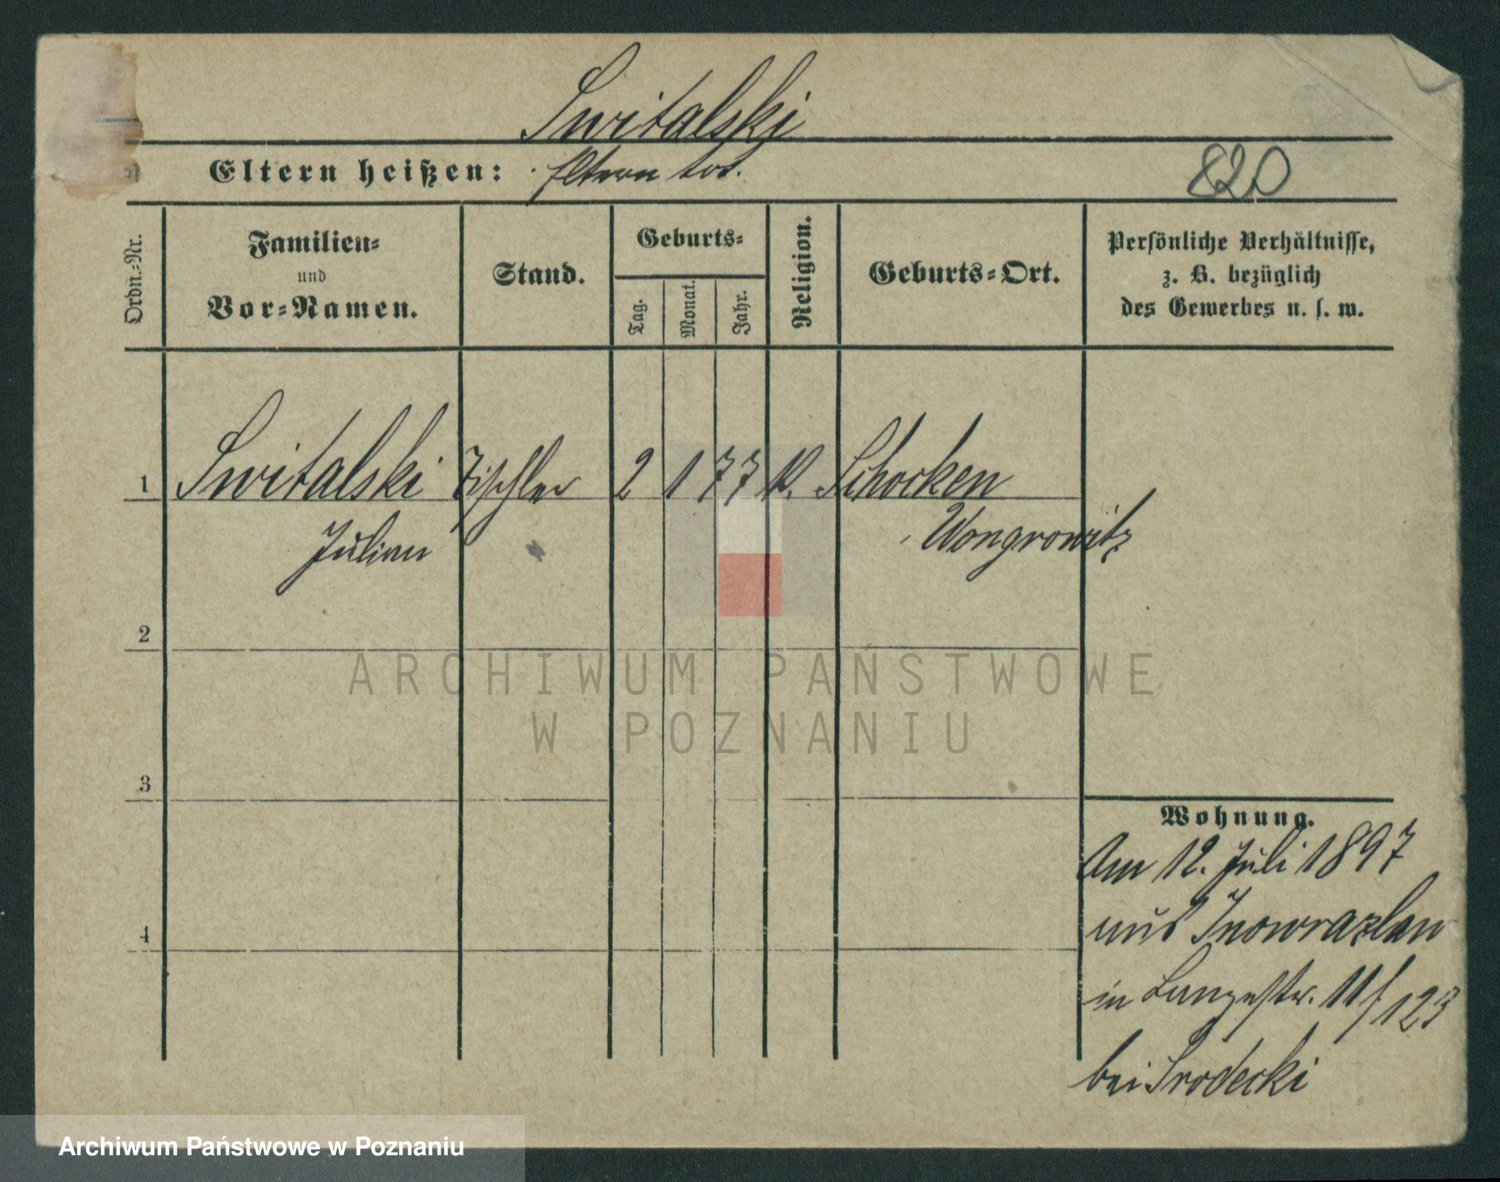 Switalski
Eltern heißen: Eltern tot.
820
Ordn.-Nr.
Familien-
und
Vor-Namen.
Stand.
Geburts-
Tag.
Monat.
Jahr.
Religion.
Geburts-Ort.
Persönliche Verhältnisse,
z. B. bezüglich
des Gewerbes u. s. w.
1 Switalski Tischler 2 1 77 K. Schocken
Julian Wongrowitz
2
3
4
Wohnung.
Am 12. Juli 1897
aus Inowrazlaw
in Langestr. 11/123
bei Srodecki
ARCHIWUM PAŃSTWOWE
W POZNANIU
Archiwum Państwowe w Poznaniu